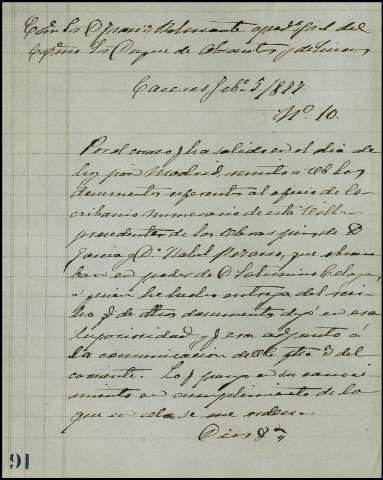 Exmo. Sr. D. Franco. Belmonte apodo. gral del
Exmo. Sr. Duque de Abrantes y de Linares
Caceres Febo. 5/877
No. 10.
Por el correo q. ha salido en el dia de
hoy por Madrid, remito a Vd los
documentos referentes al oficio de Es-
cribano numerario de esta Villa
procedentes de las Obras pias de D
Garcia y Da. Isabel Pizarro, que obra-
ban en poder de D Saturnino
á quien he hecho entrega del reci-
bo q. de dhos documentos dejó en esa
superioridad y q. era adjunto á
la comunicacion de Vd. fha 3 del
corriente. Lo q. pongo en su conoci-
miento en cumplimiento de lo
que en ella se me ordena.
Dios &a
91